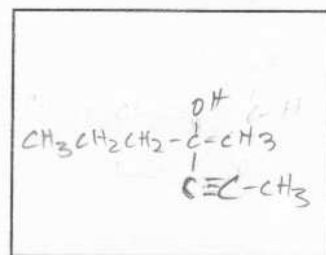 OH
CH3CH2CH2-C-CH3
C≡C-CH3